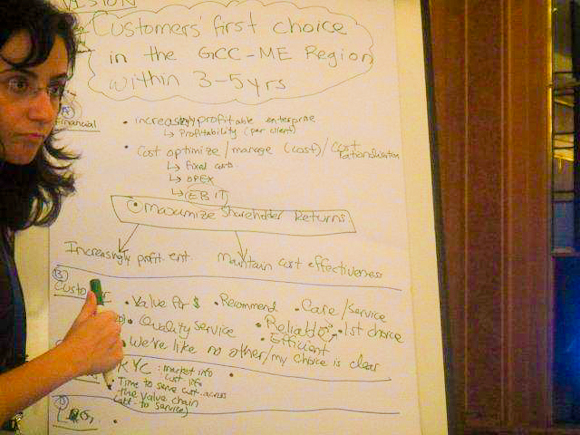 VISION
Customers' first choice
in the GCC-ME Region
within 3-5yrs
A
Financial
• increasingly profitable enterprise
↳ Profitability (per client)
• Cost optimize/manage (cost)/cost
rationalisation
↳ Fixed costs
↳ OPEX
↳ EBIT
maximize shareholder Returns
Increasingly profit. ent.
maintain cost effectiveness
B
• Value for $ • Recommend • Care/service
• Quality service • Reliable • 1st choice
• Efficient
• We're like no other/my choice is clear
KYC : market info
cust info
• Time to serve cust. across
the value chain
to service)